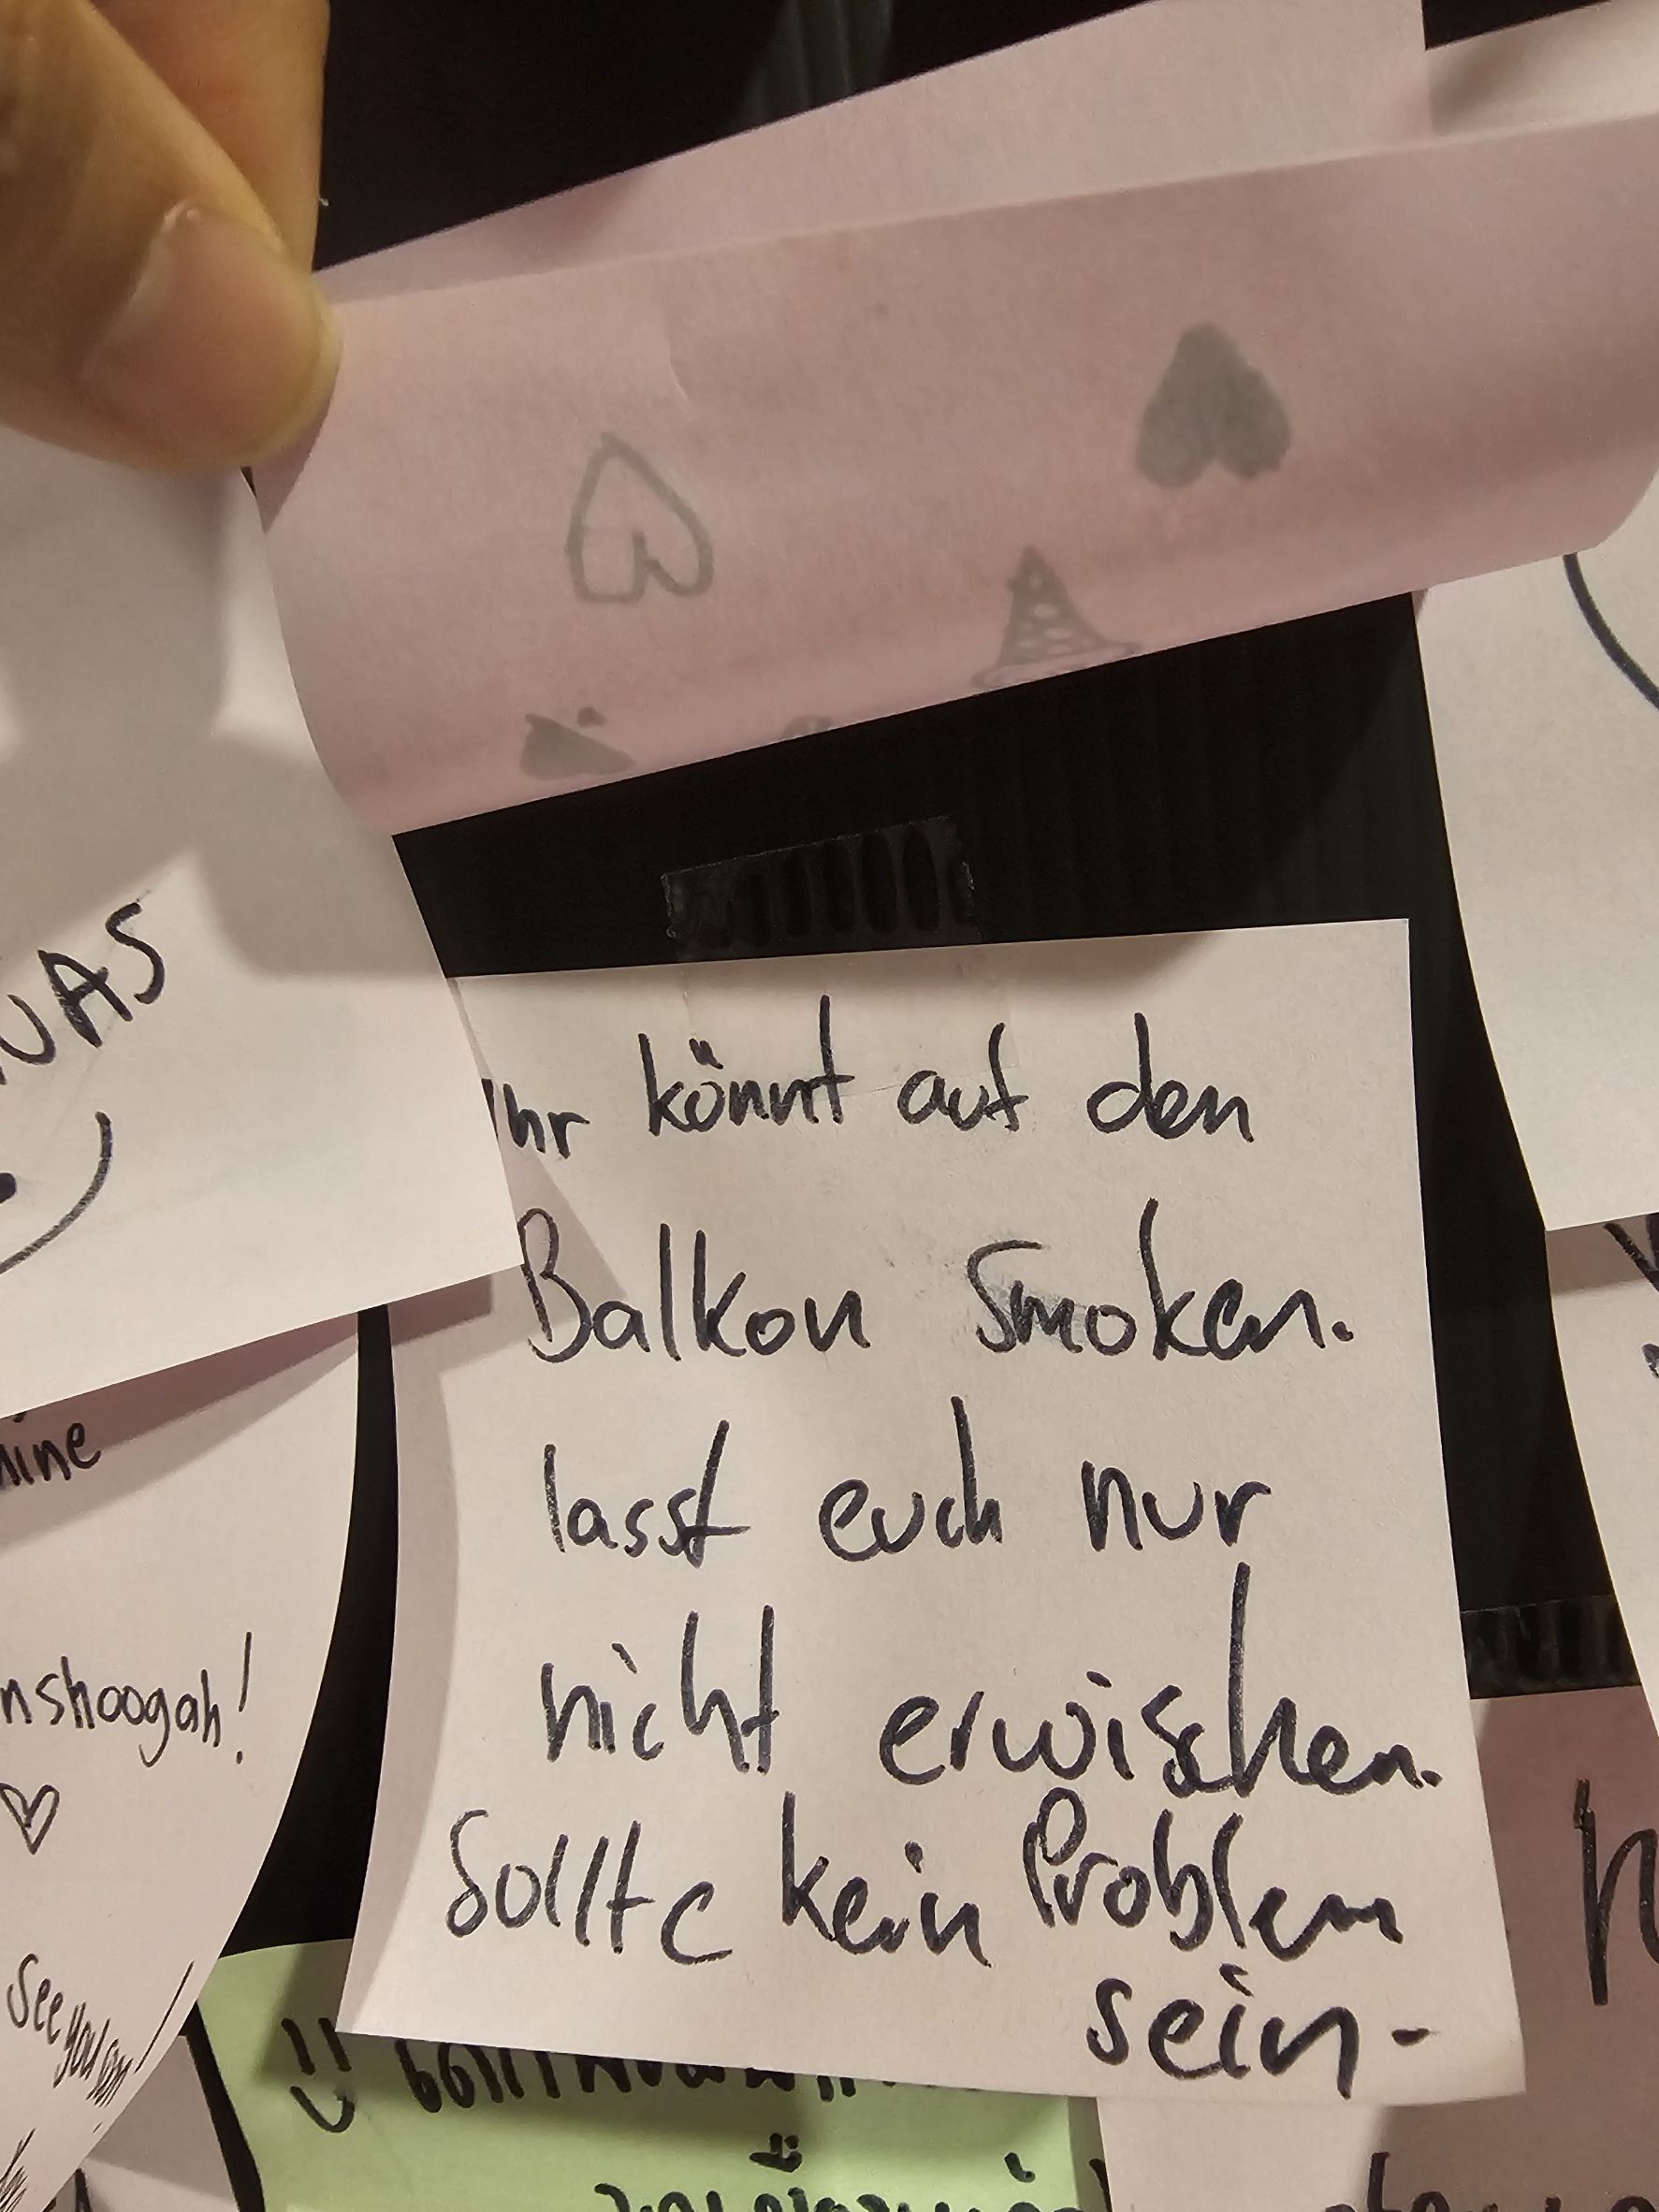 Ihr könnt auf den
Balkon smoken.
lasst euch nur
nicht erwischen.
Sollte kein Problem
sein-
nshoogah!
See you